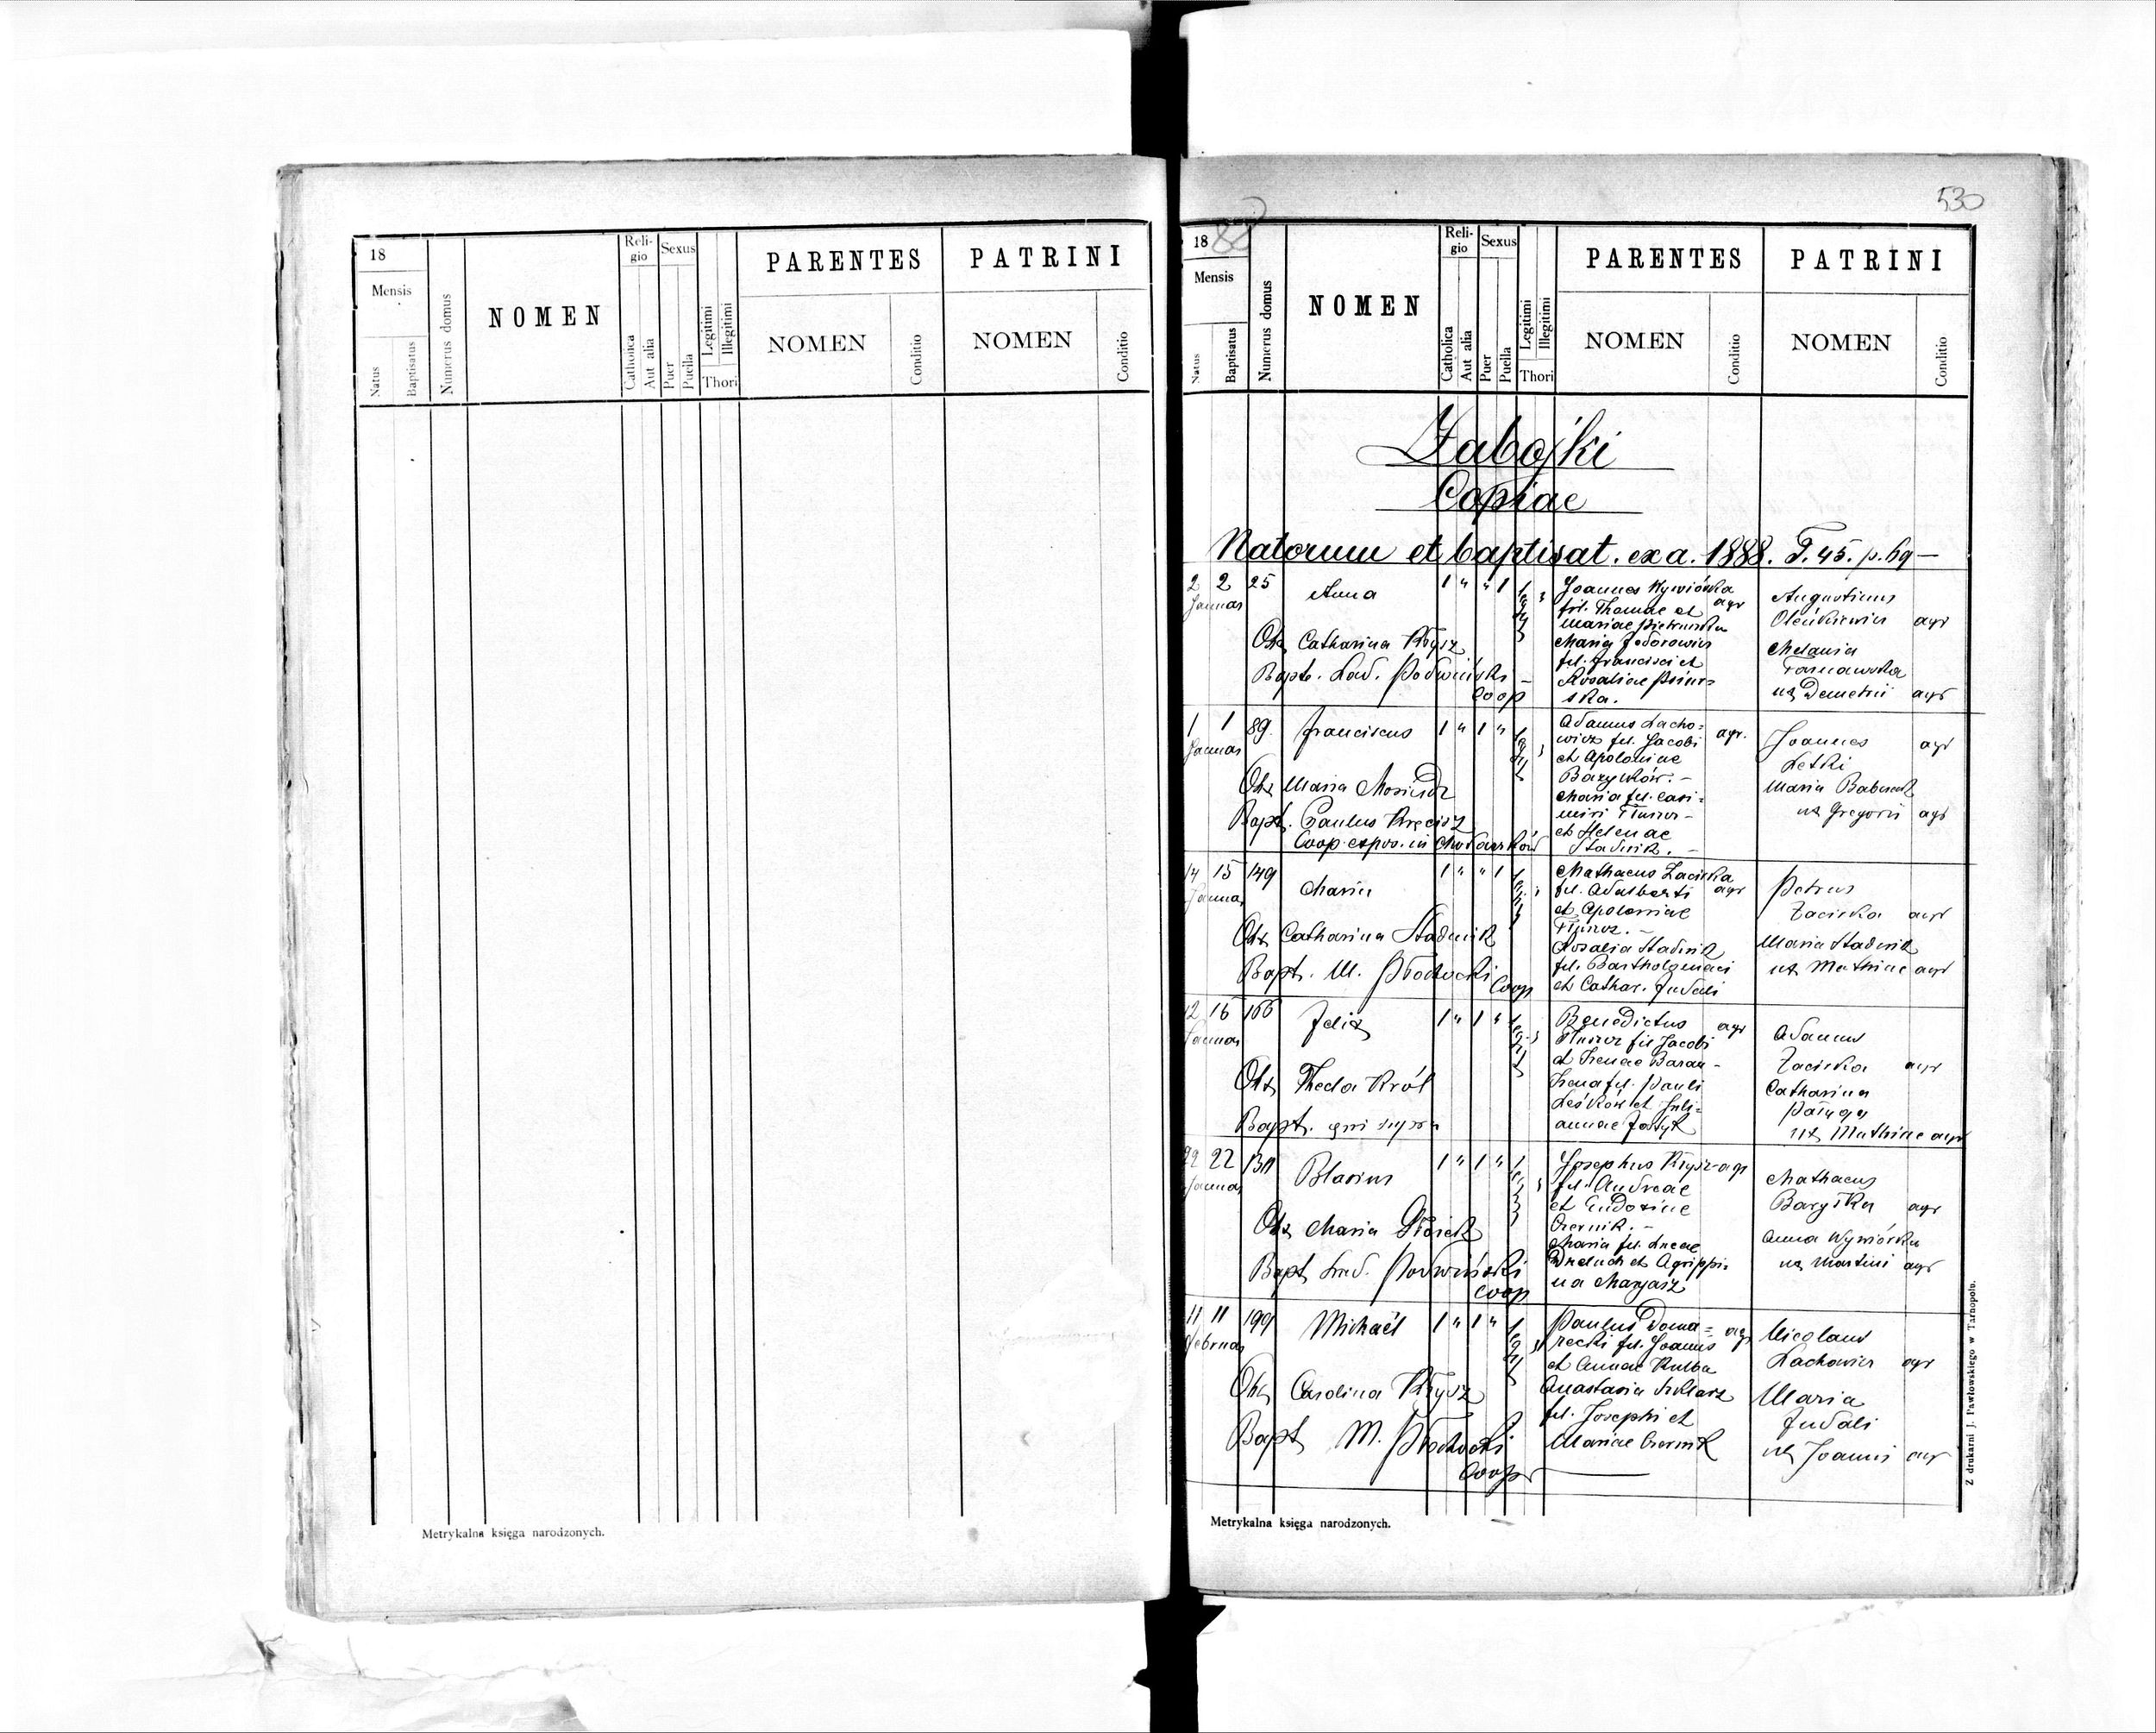 18
Mensis
Natus
Baptisatus
Numerus domus
NOMEN
Reli-
gio
Catholica
Aut alia
Sexus
Puer
Puella
Legitimi
Illegitimi
Thori
PARENTES
NOMEN
Conditio
PATRINI
NOMEN
Conditio
Metrykalna księga narodzonych.
530
1888
Mensis
Natus
Baptisatus
Numerus domus
NOMEN
Reli-
gio
Catholica
Aut alia
Sexus
Puer
Puella
Legitimi
Illegitimi
Thori
PARENTES
NOMEN
Conditio
PATRINI
NOMEN
Conditio
Zabojki
Copiae
Natorum et baptisat. ex a. 1888. T. 45. p. 69 —
2 2 25
Januar
Anna
1 " " 1
Obs. Catharina Krysz
Bapt. Lad. Podwiński
Coop
Joannes Wywiórka
fil. Thomae et agr
Mariae
Maria Fedorowicz
fil. Francisci et
Rosaliae
ska.
Augustinus
agr
Melania
Tarnawska
ux Demetrii agr
1 1 89.
Januar
Franciscus
1 " 1 "
Obs. Maria
Bapt. Paulus Kręcisz
Coop. expos. in
Adamus Lacho-
wicz fil. Jacobi agr.
et Apoloniae
Maria fil. Casi-
miri Tłumor
et Helenae
Stadnik. —
Joannes agr
Letki
Maria
ux Gregorii agr
14 15 149
Januar
Maria
1 " " 1
Obs. Catharina Stadnik
Bapt. M. Płochocki
Coop
Mathaeus Zacirka
fil. Adalberti agr
et Apoloniae
Rosalia Stadnik
fil. Bartholomaei
et Cathar. Judali
Petrus
Zacirka agr
Maria Stadnik
ux Mathiae agr
12 16 166
Januar
Felix
1 " 1 "
Obs. Thecla Król
Bapt. qui supra
Benedictus agr
fil Jacobi
et Irenae Baran -
Irena fil. Pauli
Leśków et Juli-
annae
Adamus
Zacirka agr
Catharina
Pałyga
ux Mathiae agr
22 22 131
Januar
Blasius
1 " 1 "
Obs. Maria
Bapt. Lad. Podwiński
Coop
Josephus Krysz agr
fil. Andreae
et Eudoxiae
Czernik. —
Maria fil. Lucae
et Agrippi-
na
Mathaeus
Baryska agr
Anna Wywiórka
ux Martini agr
11 11 199
Februar
Michaël
1 " 1 "
Obs. Carolina Krysz
Bapt. M. Płochocki
Coop
Paulus Doma- agr
recki fil. Joannis
et Annae Kulba
Anastasia Szklarz
fil. Josephi et
Mariae Czernik
Nicolaus
Lachowicz agr
Maria
Judali
ux Joannis agr
Z drukarni J. Pawłowskiego w Tarnopolu.
Metrykalna księga narodzonych.